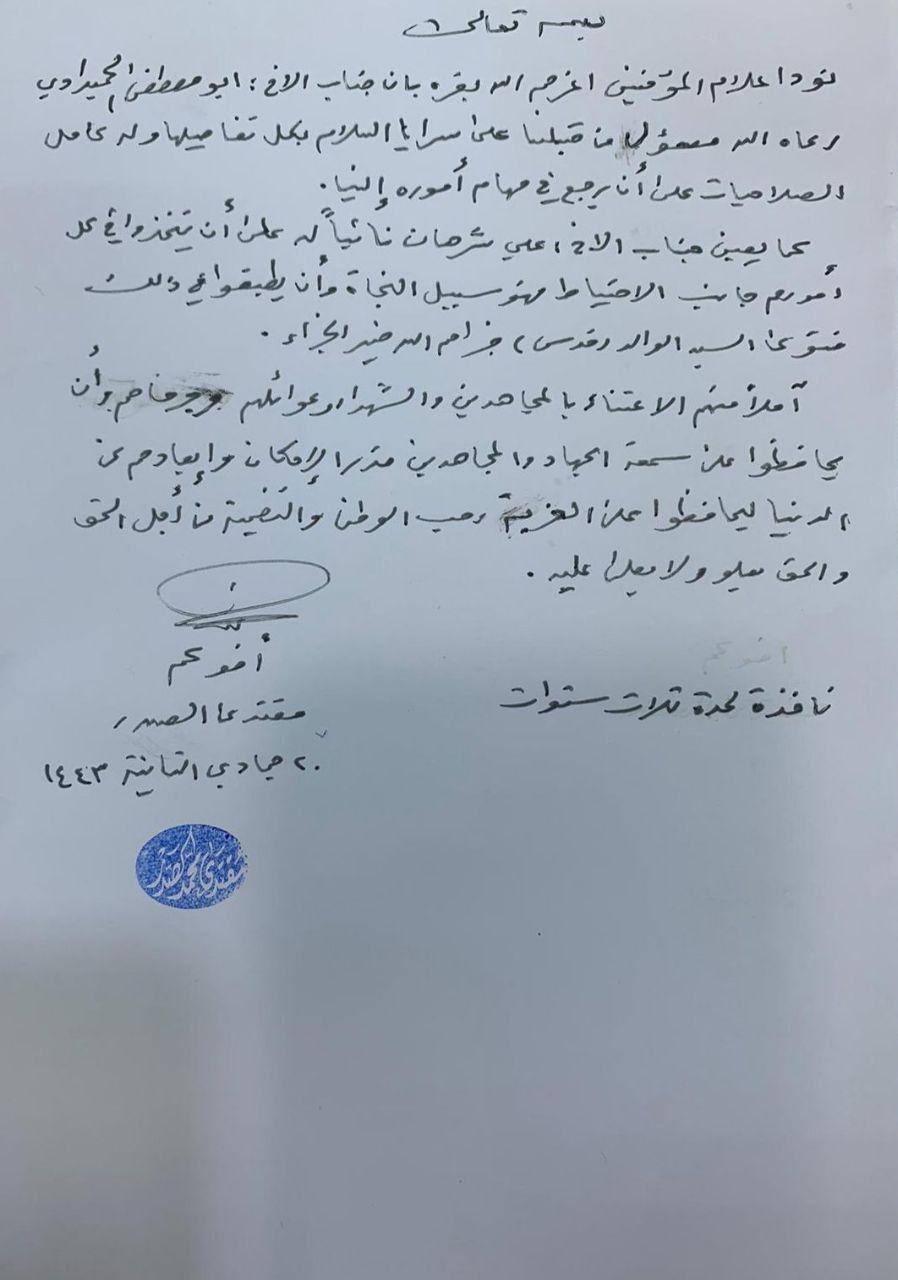 بسمه تعالى
نود اعلام المؤمنين اعزهم الله بنصره بان جناب الاخ: ابو مصطفى الحميداوي
رعاه الله مسؤولا من قبلنا على سرايا السلام بكل تفاصيلها وله كامل
الصلاحيات على أن يرجع في مهام أموره إلينا.
كما يعين جناب الاخ علي شرهان نائباً له على أن يتخذوا في كل
أمورهم جانب الاحتياط فهو سبيل النجاة وأن يطبقوا في ذلك
فتوى السيد الوالد (قدس) جزاهم الله خير الجزاء.
آملاً منهم الاعتناء بالمجاهدين والشهداء وعوائلهم وجرحاهم وأن
يحافظوا على سمعة الجهاد والمجاهدين قدر الإمكان وإبعادهم عن
الدنيا ليحافظوا على العزيمة وحب الوطن والتضحية من أجل الحق
والحق يعلو ولا يعلى عليه.
أخوكم
مقتدى الصدر
٢٠ جمادي الثانية ١٤٤٣
أخوكم
نافذة لمدة ثلاث سنوات
مقتدى محمد الصدر